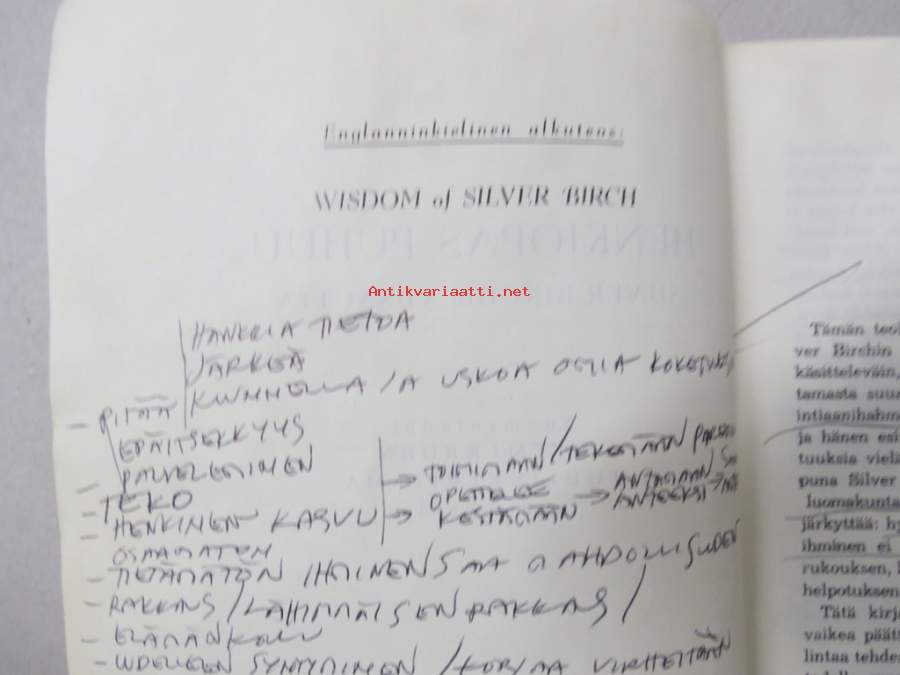 Englanninkielinen alkuteos:
WISDOM of SILVER BIRCH
Antikvariaatti.net
HANKKIA TIETOA
JÄRKEÄ
- PITÄÄ KUUNNELLA JA USKOA OMIA
EPÄITSEKKYYS
PALVELEMINEN
- TEKO
OPETTELEE
- HENKINEN KASVU → KESTÄMÄÄN → ANTEEKSI
OSAAMATON
- TIETÄMÄTÖN IHMINEN SAA MAHDOLLISUUDEN
- RAKKAUS / LÄHIMMÄISEN RAKKAUS /
- ELÄMÄNKOULU
- UUDELLEEN SYNTYMINEN / KORJAA
Tämän teol
ver Birchin
käsitteleväin,
tamasta suu
intiaanihahm
ja hänen esi
tuuksia viel
puna Silver
luomakunta
järkyttää: hy
ihminen ei
rukouksen, l
helpotuksen
Tätä kirj
vaikea päätt
lintaa tehde